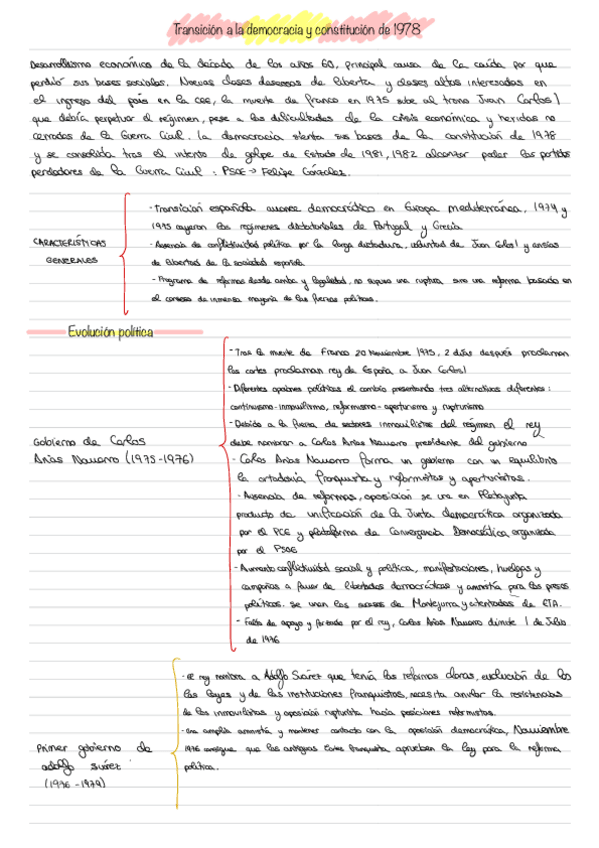 Transición a la democracia y constitución de 1978
Desarrollismo económico de la década de los años 60, principal causa de la caída por que
perdió sus bases sociales. Nuevas clases deseosas de libertad y clases altas interesadas en
el ingreso del país en la CEE, la muerte de franco en 1975 sube al trono Juan Carlos I
que debría perpetuar el régimen, pese a las dificultades de la crisis económica y heridas no
cerradas de la Guerra Civil. La democracia sienta sus bases de la constitución de 1978
y se consolida tras el intento de golpe de Estado de 1981, 1982 alcanzan poder los partidos
perdedores de la Guerra Civil: PSOE → Felipe González.
- Transición española avance democrático en Europa mediterránea, 1974 y
1975 cayeron los regímenes dictatoriales de Portugal y Grecia
CARACTERÍSTICAS
GENERALES
- Ausencia de conflictividad política por la larga dictadura, voluntad de Juan Carlos I y ansias
de libertad de la sociedad española
- Programa de reformas desde arriba y legalidad, no supuso una ruptura sino una reforma basada en
el consenso de inmensa mayoría de las fuerzas políticas.
Evolución política
- Tras la muerte de Franco 20 Noviembre 1975, 2 días después proclaman
las cortes proclaman rey de España a Juan Carlos I
- Diferentes opciones políticas el cambio presentando tres alternativas diferentes:
continuismo-inmovilismo, reformismo-aperturismo y rupturismo
- Debido a la fuerza de sectores inmovilistas del régimen el rey
debe nombrar a Carlos Arias Navarro presidente del gobierno
Gobierno de Carlos
Arias Navarro (1975-1976)
- Carlos Arias Navarro forma un gobierno con un equilibrio
la ortodoxia franquista y reformistas y aperturistas.
- Ausencia de reformas, oposición se une en Platajunta
producto de unificación de la Junta democrática organizada
por el PCE y plataforma de Convergencia Democrática organizada
por el PSOE
- Aumento conflictividad social y política, manifestaciones, huelgas y
campañas a favor de libertades democráticas y amnistía para los presos
políticos. Se unen los sucesos de Montejurra y atentados de ETA.
- Falta de apoyo y forzado por el rey, Carlos Arias Navarro dimite 1 de Julio
de 1976
- El rey nombra a Adolfo Suárez que tenía las reformas claras, evolución de las
las leyes y de las instituciones franquistas, necesita anular la resistencias
de los inmovilistas y oposición rupturista hacia posiciones reformistas.
- Una amplia amnistía y mantener contacto con la oposición democrática, Noviembre
1976 consigue que las antiguas Cortes franquista aprueben la ley para la reforma
política.
Primer gobierno de
adolfo suárez
(1976-1979)